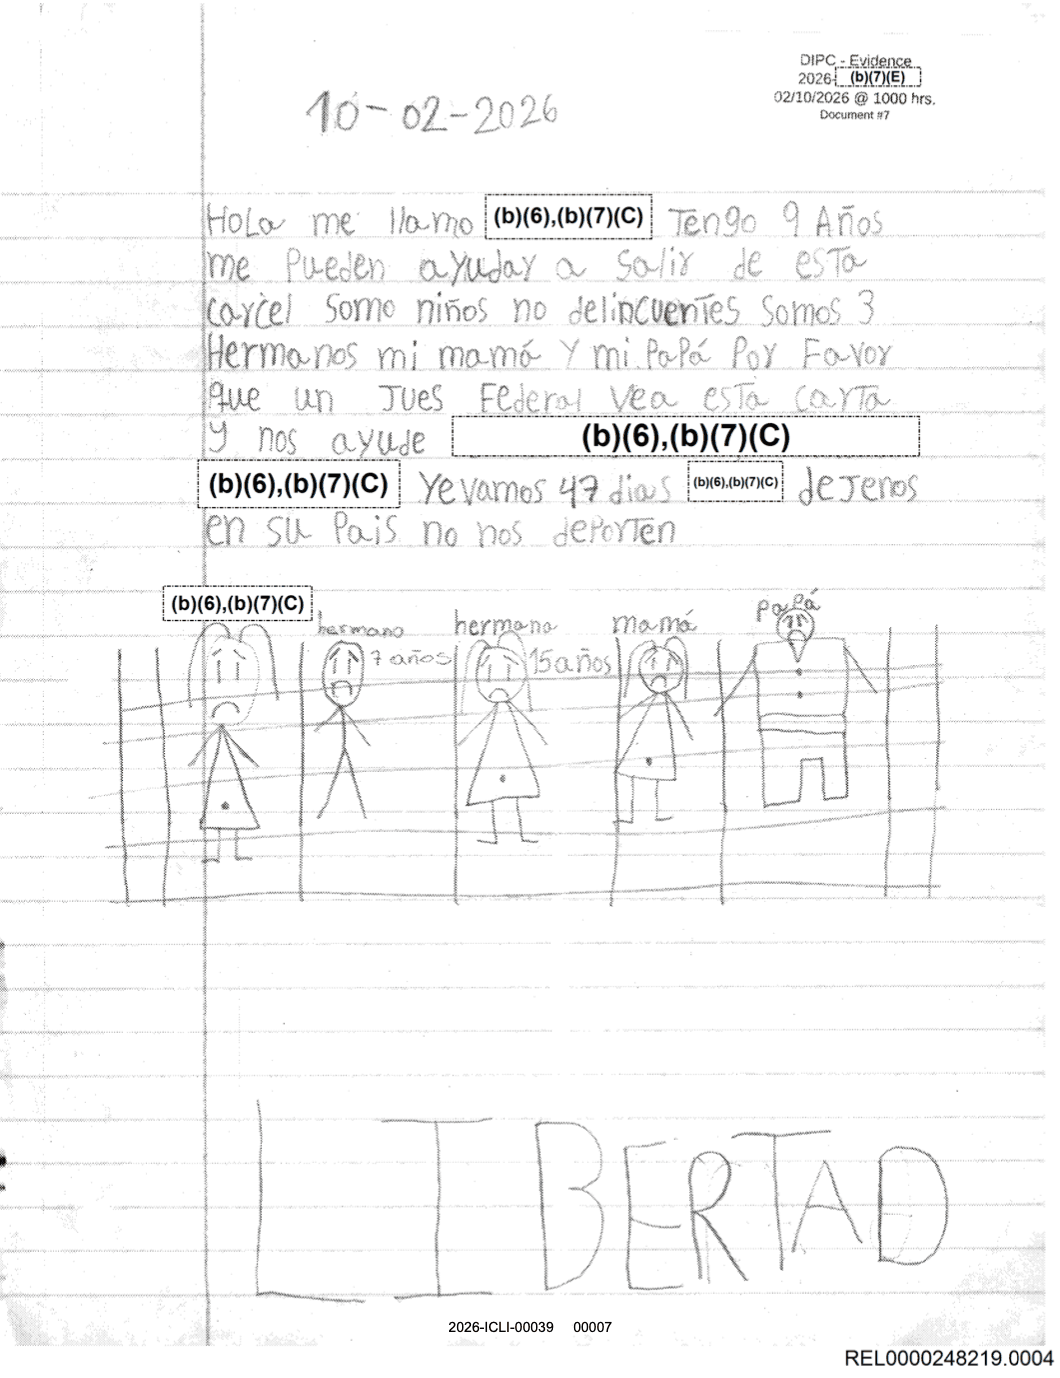 DIPC - Evidence
2026- (b)(7)(E)
02/10/2026 @ 1000 hrs.
Document #7
10-02-2026
HoLa me llamo (b)(6),(b)(7)(C) Tengo 9 Años
me Pueden ayudar a Salir de esta
carcel Somo niños no delincuentes Somos 3
Hermanos mi mamá Y mi PaPá Por Favor
que un Jues Federal Vea esta carta
y nos ayude (b)(6),(b)(7)(C)
(b)(6),(b)(7)(C) Yevamos 47 dias (b)(6),(b)(7)(C) deJenos
en su Pais no nos dePorten
(b)(6),(b)(7)(C)
hermano
7 años
hermana
15 años
mamá
PaPá
LIBERTAD
2026-ICLI-00039 00007
REL0000248219.0004